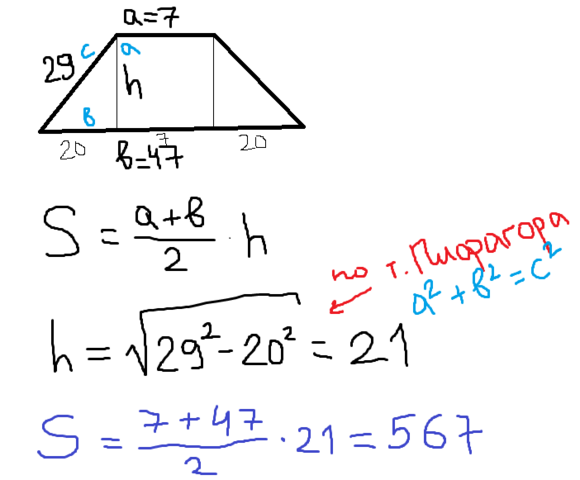 a=7
29 c a
h
в
20 7 20
в=47
S = \frac{a+в}{2} · h
по т. Пифагора
a² + в² = c²
h = √(29² - 20²) = 21
S = \frac{7+47}{2} · 21 = 567